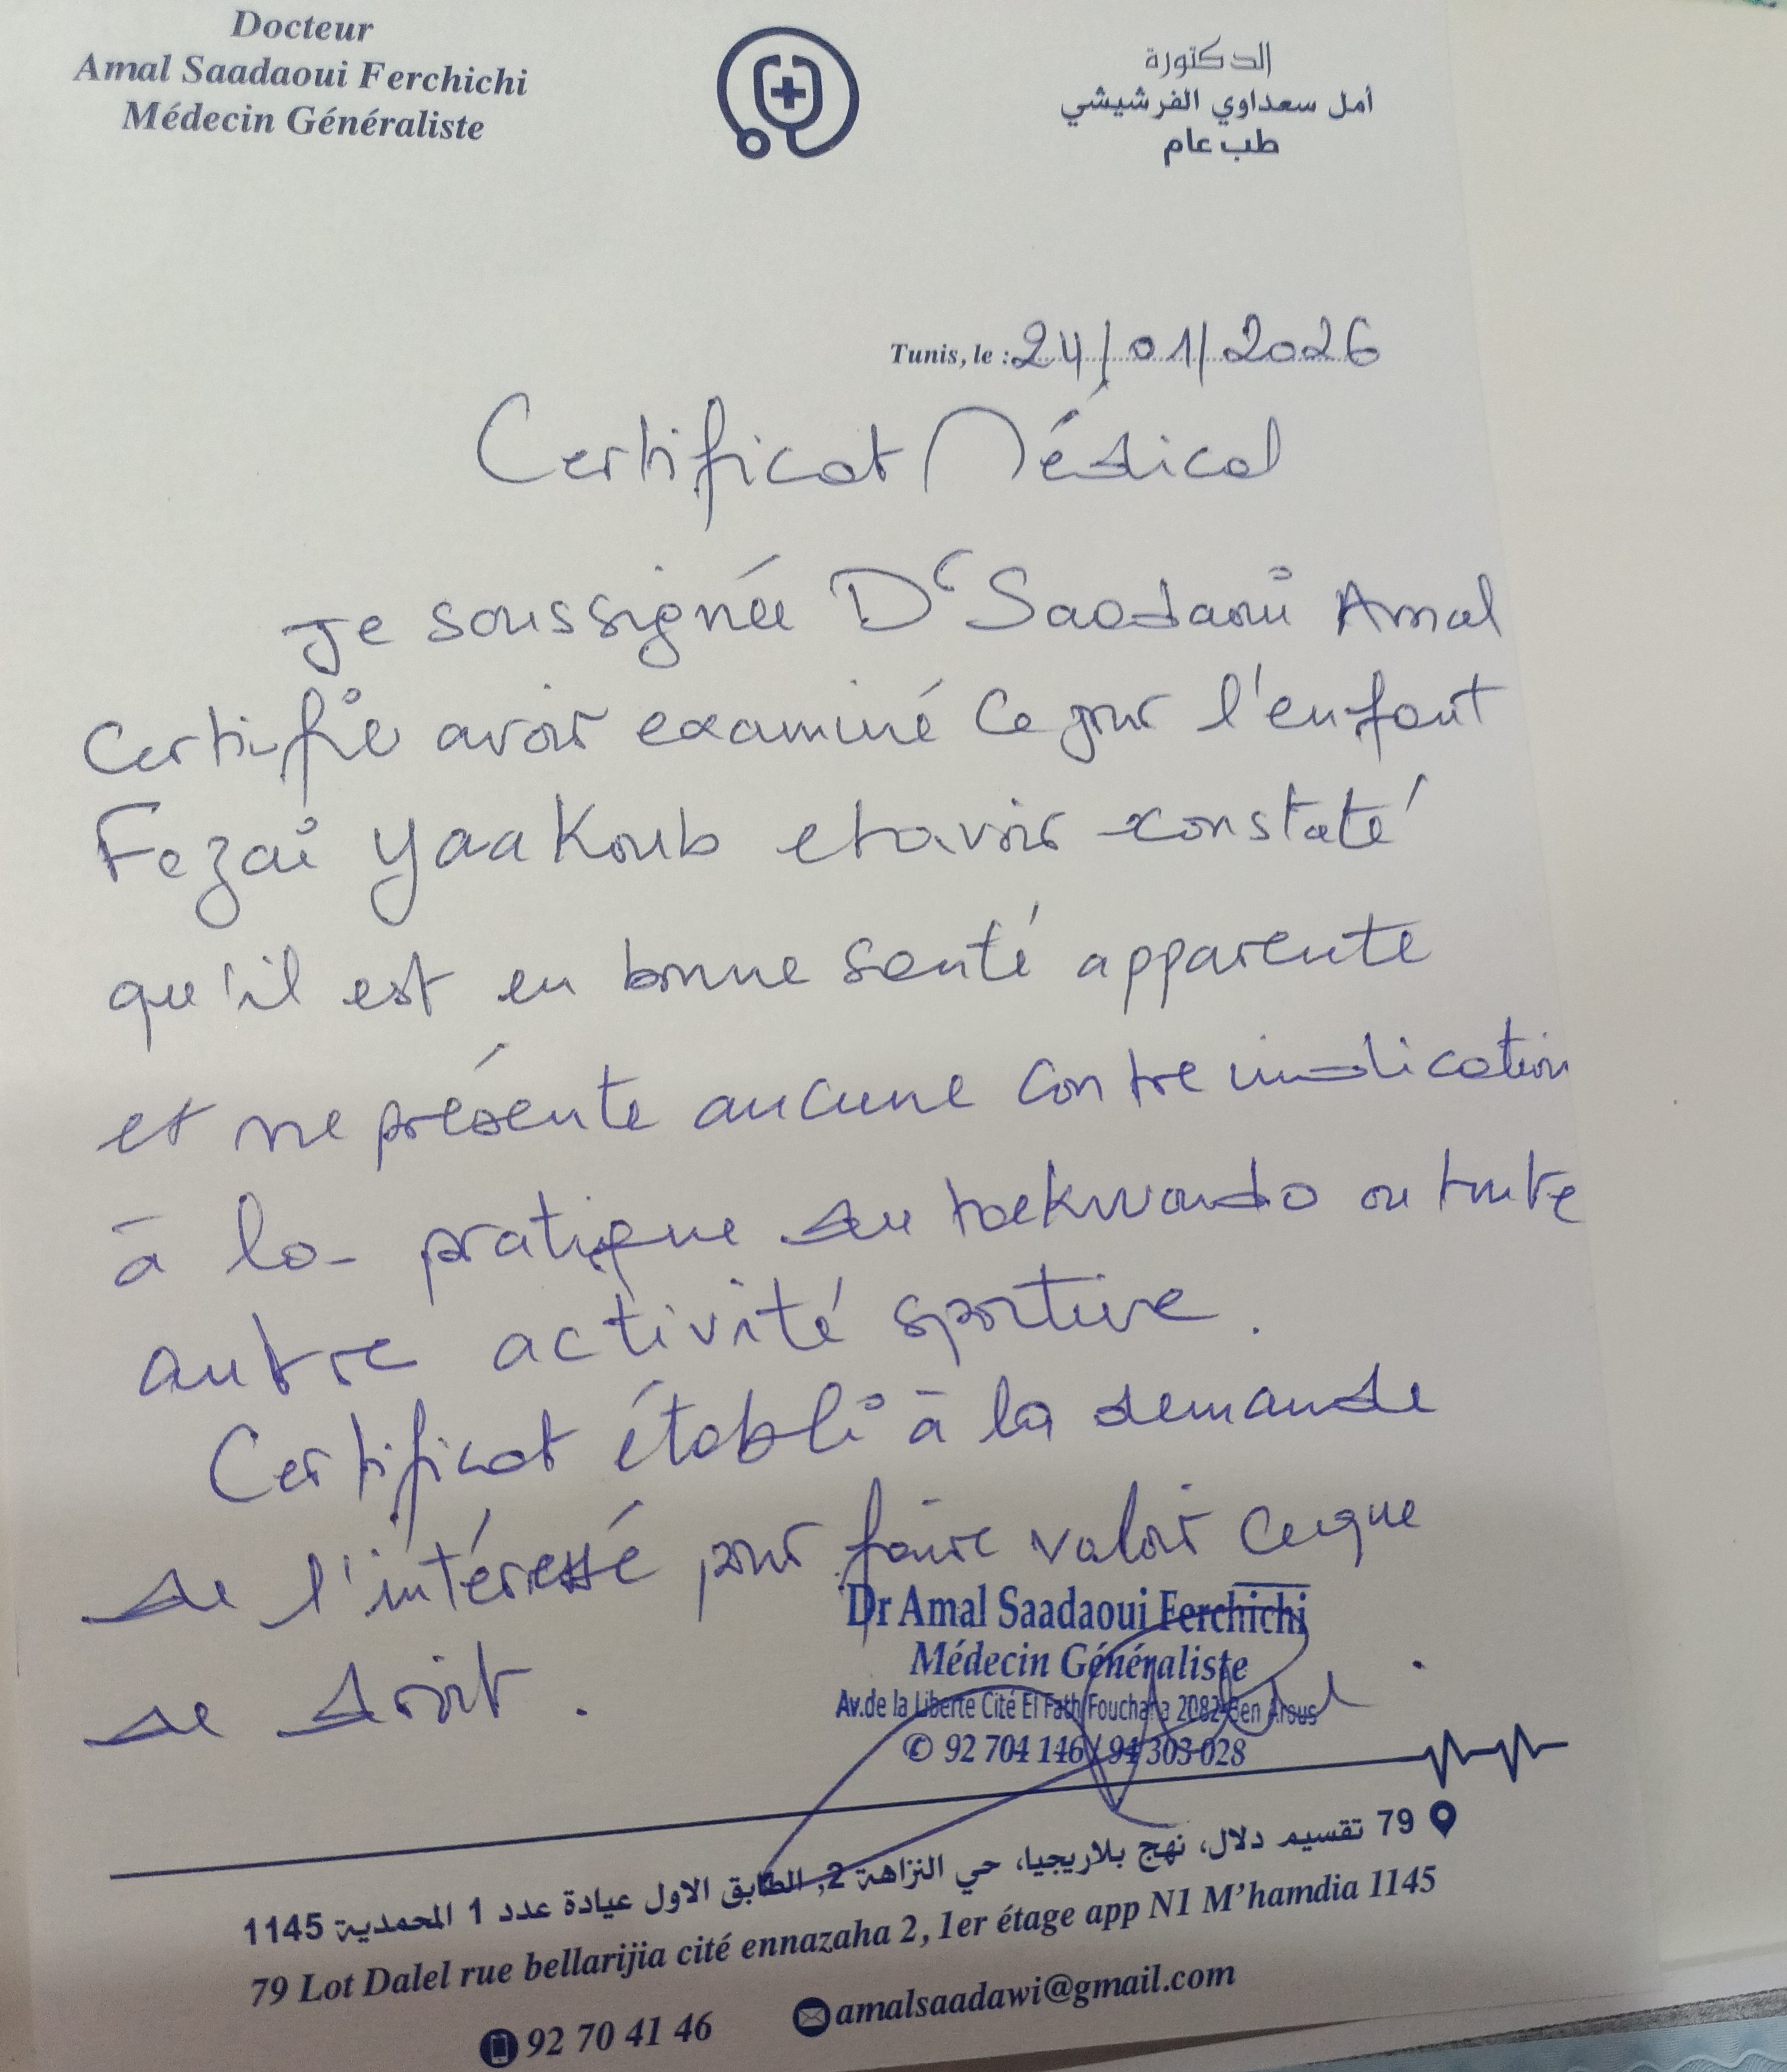 Docteur
Amal Saadaoui Ferchichi
Médecin Généraliste
الدكتورة
أمل سعداوي الفرشيشي
طب عام
Tunis, le : 24/01/2026
Certificat Médical
Je soussignée Dr Saadaoui Amal
Certifie avoir examiné ce jour l'enfant
Fezai Yaakoub et avoir constaté
qu'il est en bonne santé apparente
et ne présente aucune contre indication
à la pratique du taekwondo ou toute
autre activité sportive.
Certificat établi à la demande
de l'intéressé pour faire valoir ce que
de droit.
Dr Amal Saadaoui Ferchichi
Médecin Généraliste
Av.de la Liberte Cité El Fath Fouchana 2082 Ben Arous
✆ 92 704 146 / 94 303 028
79 تقسيم دلال، نهج بلاريجيا، حي النزاهة 2, الطابق الاول عيادة عدد 1 المحمدية 1145
79 Lot Dalel rue bellarijia cité ennazaha 2, 1er étage app N1 M'hamdia 1145
92 70 41 46
amalsaadawi@gmail.com